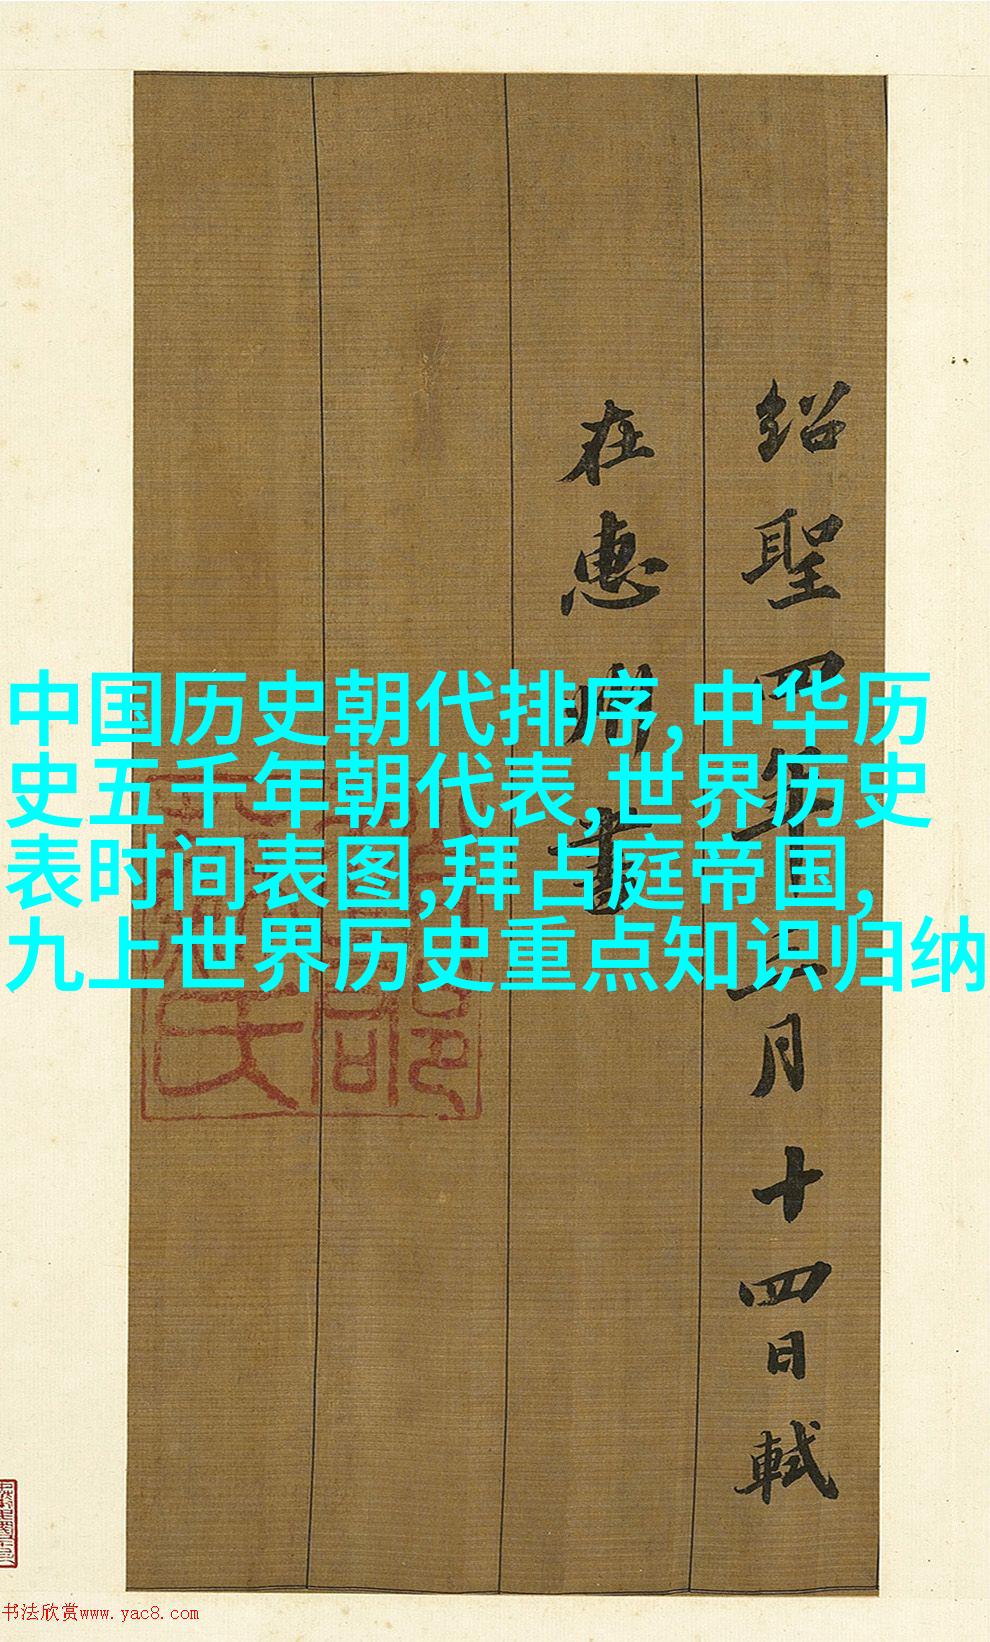 绍聖四年三月十四日軾
在惠州書
中国历史朝代排序,中华历
史五千年朝代表,世界历史
表时间表图,拜占庭帝国,
九上世界历史重点知识归纳
书法欣赏www.yac8.com